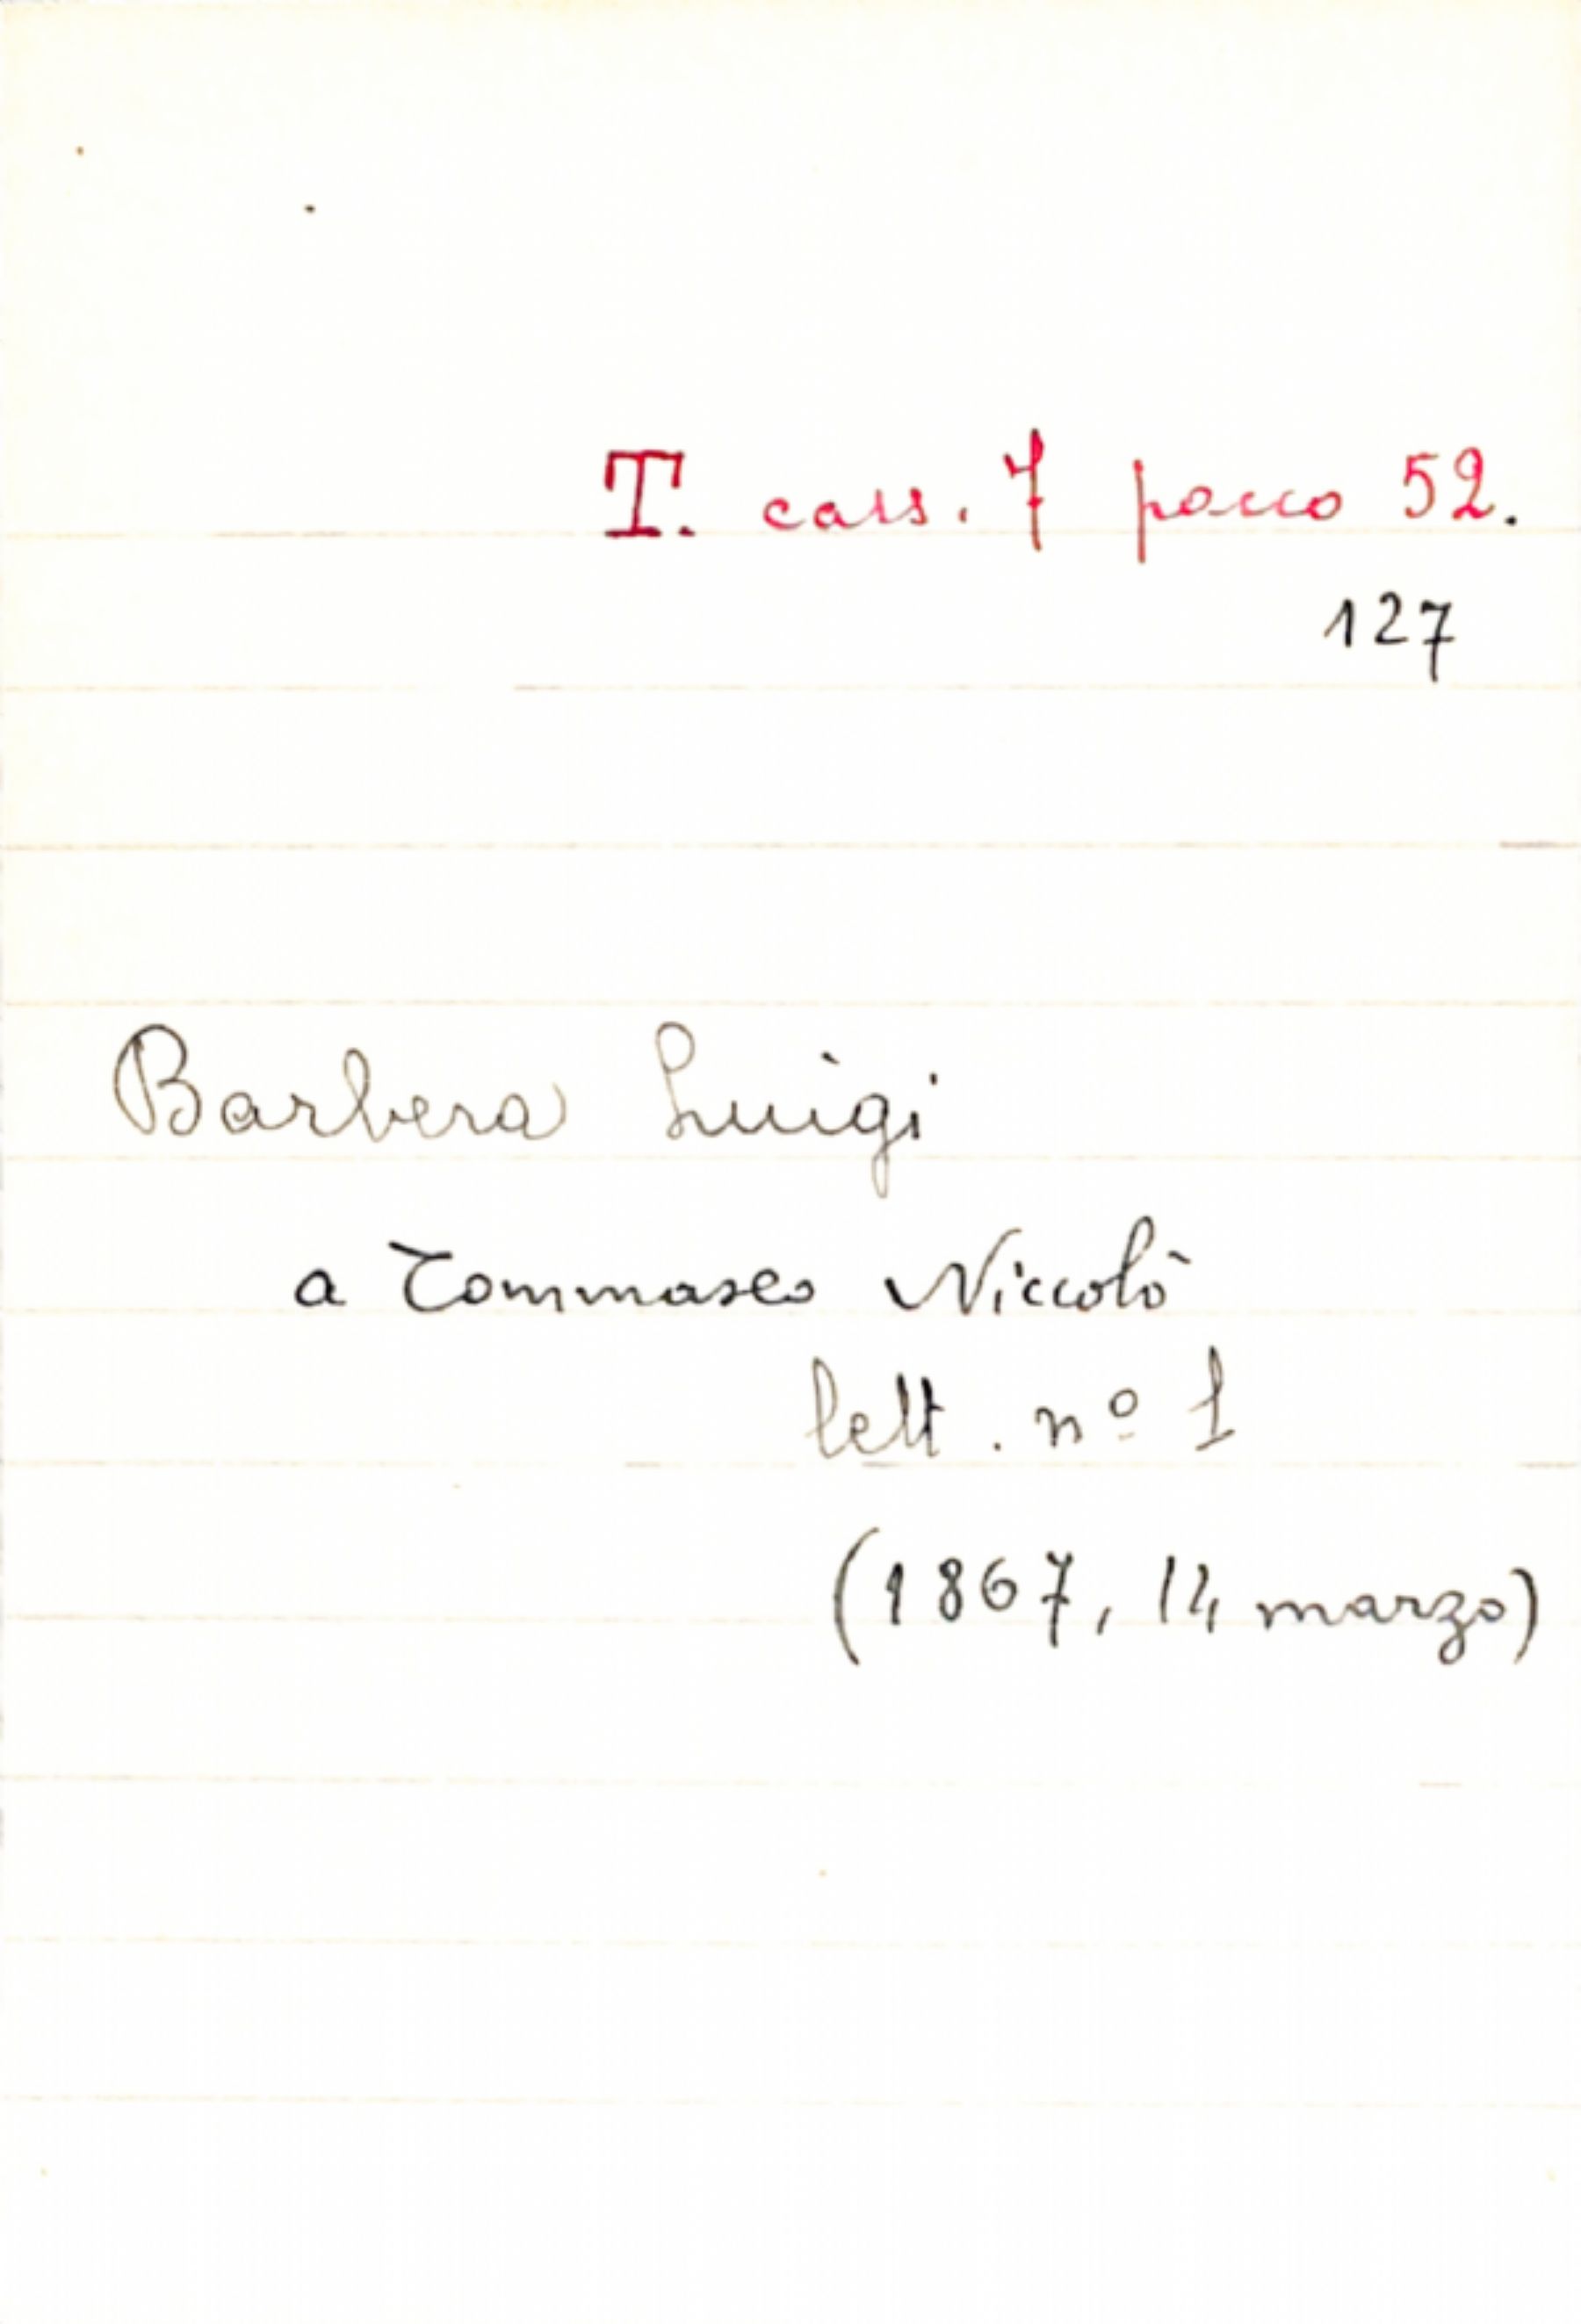 T. cass. 7 pacco 52.
127
Barbera Luigi
a Tommaseo Niccolò
lett. nº 1
(1867, 14 marzo)